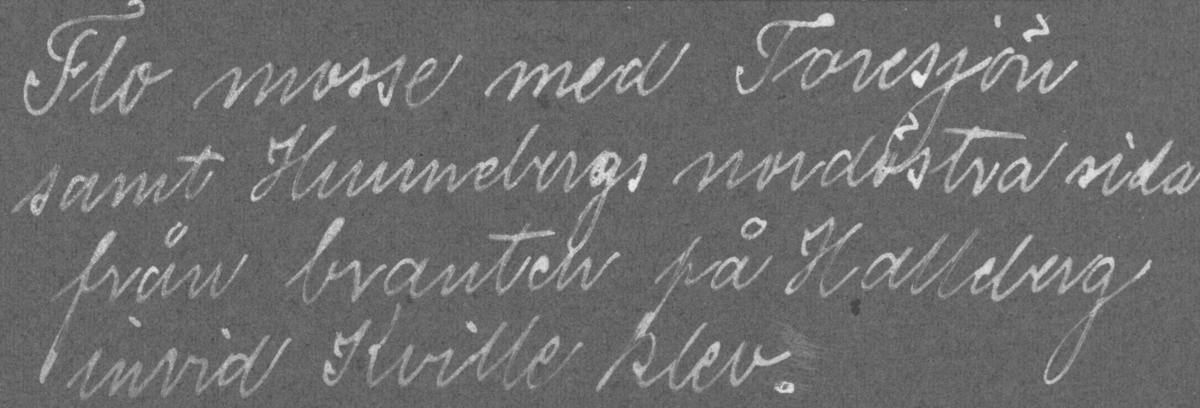 Flo mosse med Toresjön
samt Hunnebergs nordöstra sida
från branten på Halleberg
invid Kville klev.